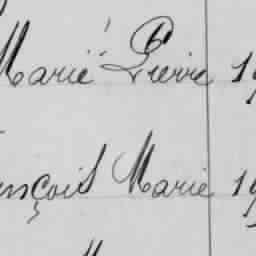 Marie Pierre 19
nçois Marie 19